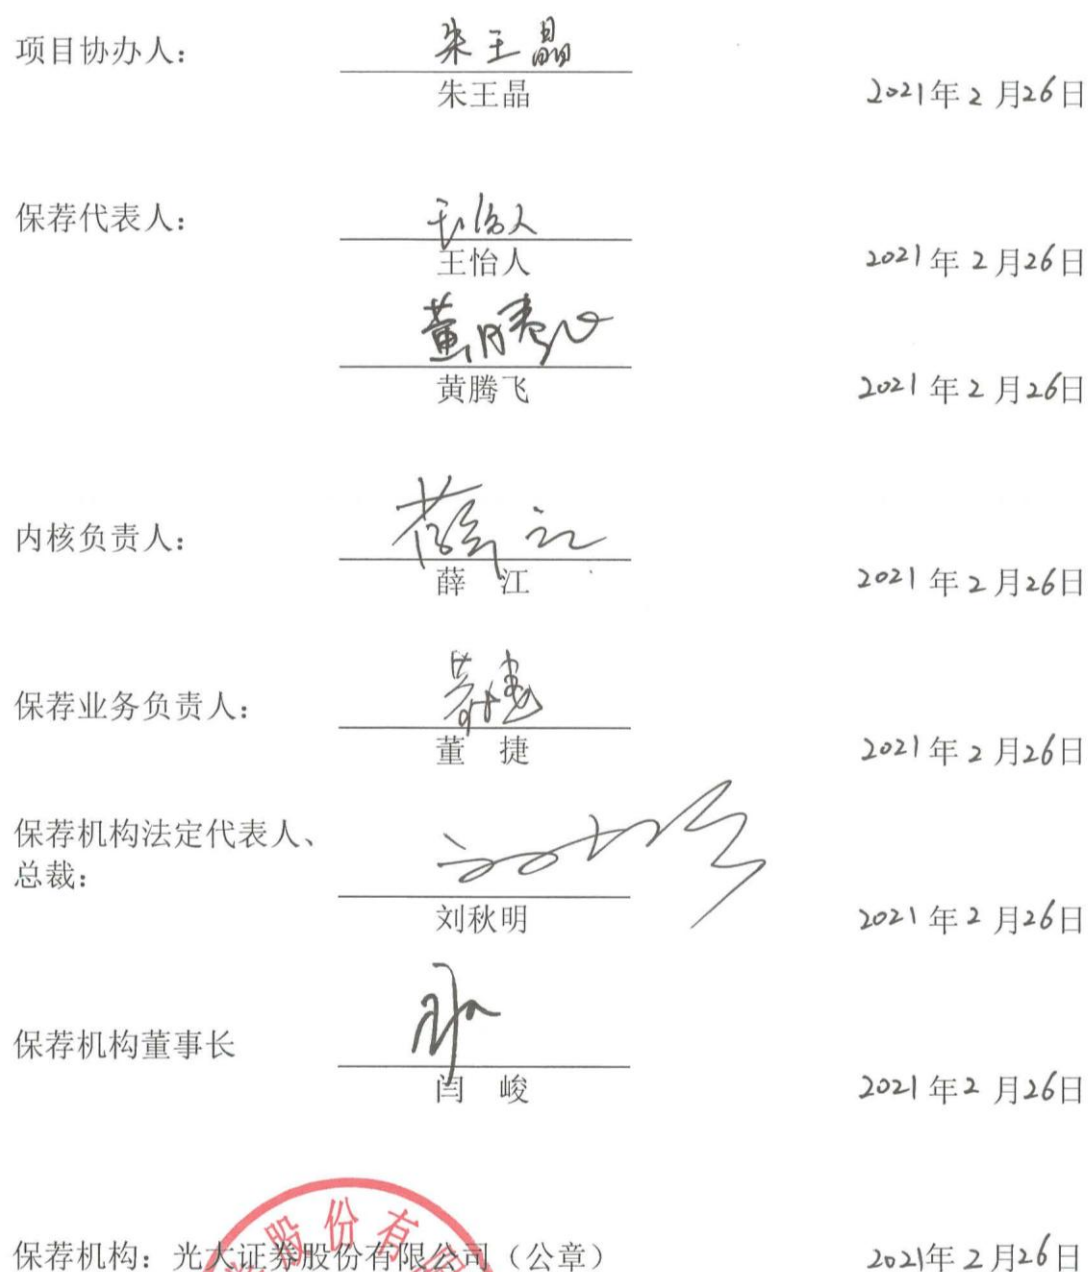 项目协办人：
朱王晶
朱王晶
2021年2月26日
保荐代表人：
王怡人
王怡人
2021年2月26日
黄腾飞
黄腾飞
2021年2月26日
内核负责人：
薛江
薛 江
2021年2月26日
保荐业务负责人：
董捷
董 捷
2021年2月26日
保荐机构法定代表人、
总裁：
刘秋明
2021年2月26日
保荐机构董事长
闫 峻
2021年2月26日
股份有限
保荐机构：光大证券股份有限公司（公章）
2021年2月26日